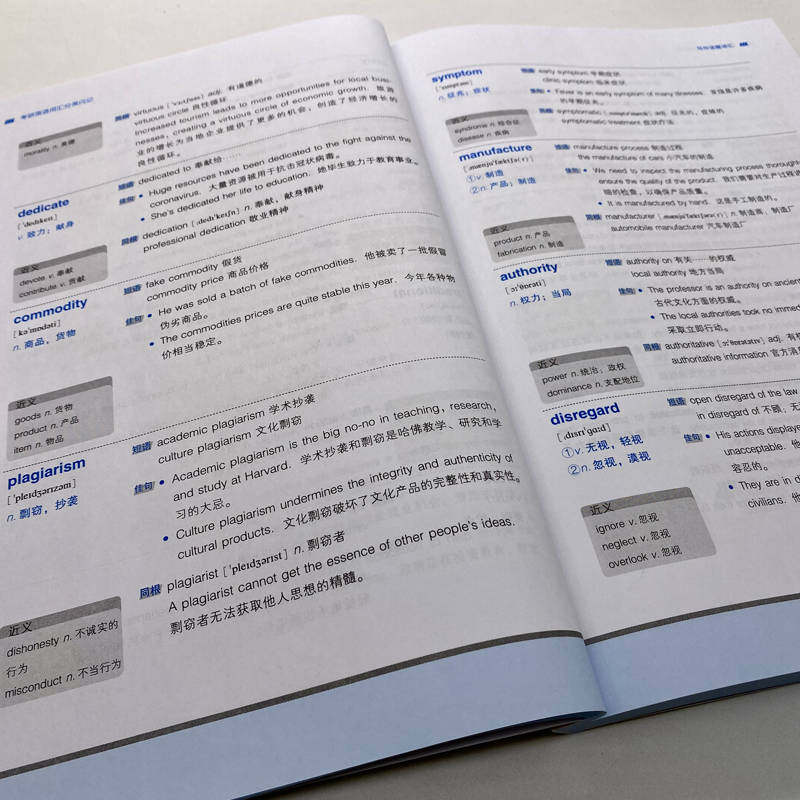 考研英语词汇分类闪记
近义
morality n. 美德
同根 virtuous [ˈvɜːtʃuəs] adj. 有道德的
virtuous circle 良性循环
Increased tourism leads to more opportunities for local busi-
nesses, creating a virtuous circle of economic growth. 旅游
业的增长为当地企业提供了更多的机会，创造了经济增长的
良性循环。
dedicate
[ˈdedɪkeɪt]
v. 致力；献身
近义
devote v. 奉献
contribute v. 贡献
短语 dedicated to 奉献给……
佳句 • Huge resources have been dedicated to the fight against the
coronavirus. 大量资源被用于抗击冠状病毒。
• She's dedicated her life to education. 她毕生致力于教育事业。
同根 dedication [ˌdedɪˈkeɪʃn] n. 奉献，献身精神
professional dedication 敬业精神
commodity
[kəˈmɒdəti]
n. 商品，货物
近义
goods n. 货物
product n. 产品
item n. 物品
短语 fake commodity 假货
commodity price 商品价格
佳句 • He was sold a batch of fake commodities. 他被卖了一批假冒
伪劣商品。
• The commodities prices are quite stable this year. 今年各种物
价相当稳定。
plagiarism
[ˈpleɪdʒərɪzəm]
n. 剽窃，抄袭
近义
dishonesty n. 不诚实的
行为
misconduct n. 不当行为
短语 academic plagiarism 学术抄袭
culture plagiarism 文化剽窃
佳句 • Academic plagiarism is the big no-no in teaching, research,
and study at Harvard. 学术抄袭和剽窃是哈佛教学、研究和学
习的大忌。
• Culture plagiarism undermines the integrity and authenticity of
cultural products. 文化剽窃破坏了文化产品的完整性和真实性。
同根 plagiarist [ˈpleɪdʒərɪst] n. 剽窃者
A plagiarist cannot get the essence of other people's ideas.
剽窃者无法获取他人思想的精髓。
写作话题词汇
symptom
[ˈsɪmptəm]
n. 征兆；症状
近义
syndrome n. 综合征
disease n. 疾病
短语 early symptom 早期症状
clinic symptom 临床症状
佳句 • Fever is an early symptom of many illnesses. 发烧是许多疾病
的早期征兆。
同根 symptomatic adj. 征兆的，症候的
symptomatic treatment 症状疗法
manufacture
[ˌmænjuˈfæktʃə(r)]
①v. 制造
②n. 产品；制造
近义
product n. 产品
fabrication n. 制造
短语 manufacture process 制造过程
the manufacture of cars 小汽车的制造
佳句 • We need to inspect the manufacturing process thorough
ensure the quality of the product. 我们需要对生产过程进
细的检查，以确保产品质量。
• It is manufactured by hand. 这是手工制造的。
同根 manufacturer [ˌmænjuˈfæktʃərə(r)] n. 制造商，制造厂
automobile manufacturer 汽车制造厂
authority
[ɔːˈθɒrəti]
n. 权力；当局
近义
power n. 统治；政权
dominance n. 支配地位
短语 authority on 有关……的权威
local authority 地方当局
佳句 • The professor is an authority on ancient
古代文化方面的权威。
• The local authorities took no immed
采取立即行动。
同根 authoritative [ɔːˈθɒrətətɪv] adj. 有权
authoritative information 官方消
disregard
[ˌdɪsrɪˈɡɑːd]
①v. 无视，轻视
②n. 忽视，漠视
近义
ignore v. 忽视
neglect v. 忽视
overlook v. 忽视
短语 open disregard of the law
in disregard of 不顾，无
佳句 • His actions displaye
unacceptable. 他
容忍的。
• They are in d
civilians. 他